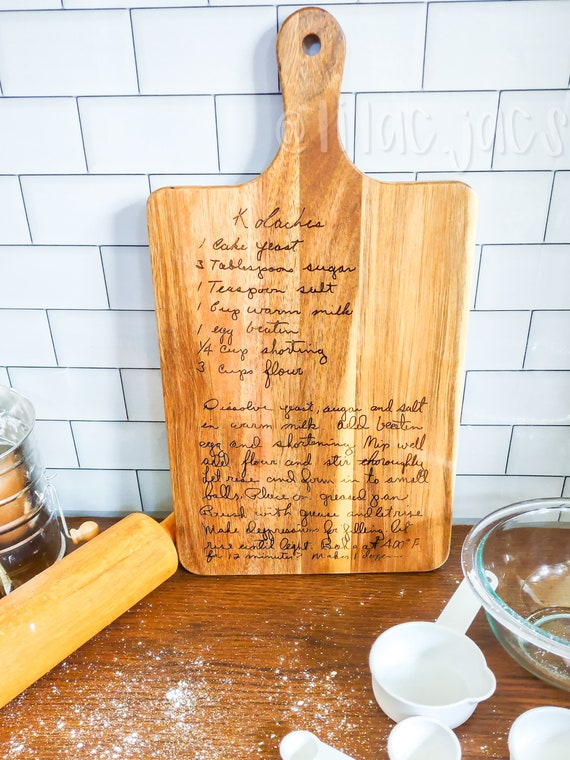 @lilac.jacs
Kolaches
1 Cake yeast
3 Tablespoons sugar
1 Teaspoon salt
1 Cup warm milk
1 egg beaten
1/4 cup shorting
3 cups flour
Dissolve yeast, sugar and salt
in warm milk add beaten
egg and shortening. Mix well
add flour and stir thoroughly
Let rise and form in to small
balls. Place on greased pan
Brush with grease and let rise
Make depressions for filling let
rise until light. Bake at 400° F
for 12 minutes. Makes 1 dozen